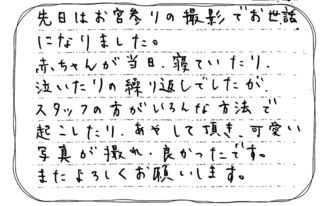 先日はお宮参りの撮影でお世話
になりました。
赤ちゃんが当日、寝ていたり、
泣いたりの繰り返しでしたが、
スタッフの方がいろんな方法で
起こしたり、あやして頂き、可愛い
写真が撮れ、良かったです。
またよろしくお願いします。